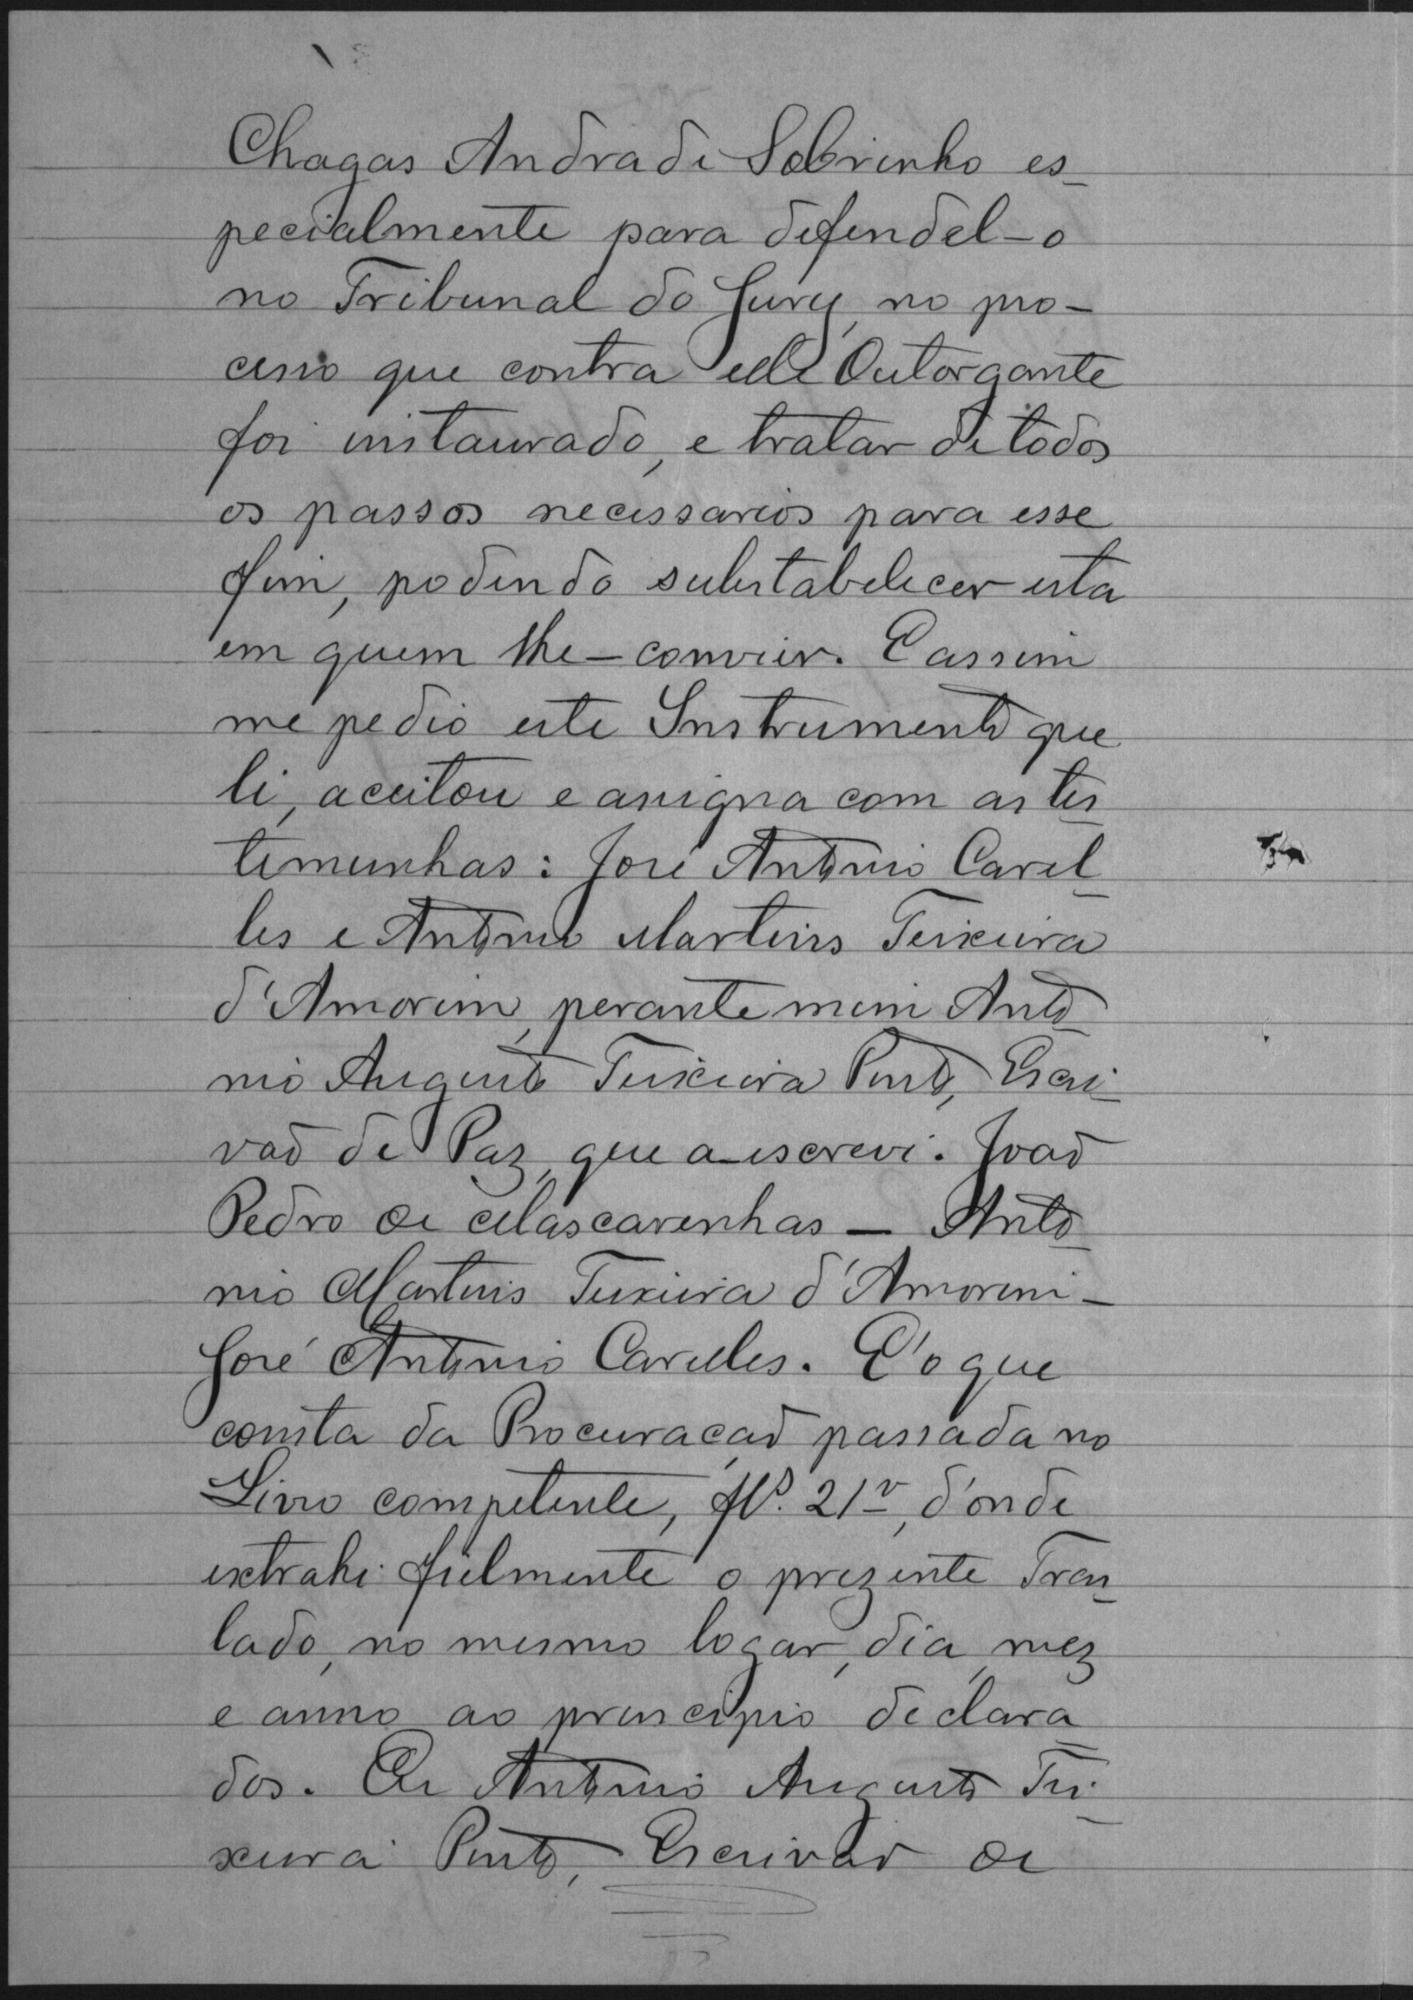 Chagas Andrade Sobrinho es-
pecialmente para defendel-o
no Tribunal do Jury, no pro-
cesso que contra elle Outorgante
foi instaurado, e tratar de todos
os passos necessarios para esse
fim, podendo substabelecer esta
em quem lhe-convier. E assim
me pedio este Instrumento que
li, aceitou e assigna com as tes
temunhas: José Antonio Carel-
les e Antonio Martins Teixeira
d'Amorim, perante mim Anto
nio Augusto Teixeira Pinto, Escri-
vaõ de Paz, que a-escrevi. Joaõ
Pedro de Mascarenhas - Anto
nio Martins Teixeira d'Amorim -
José Antonio Carelles. E' o que
consta da Procuraçaõ passada no
Livro competente, fls. 21v, d'onde
extrahi fielmente o prezente Tras-
lado, no mesmo logar, dia, mez
e anno ao principio declara
dos. Eu Antonio Augusto Tei-
xeira Pinto, Escrivaõ de